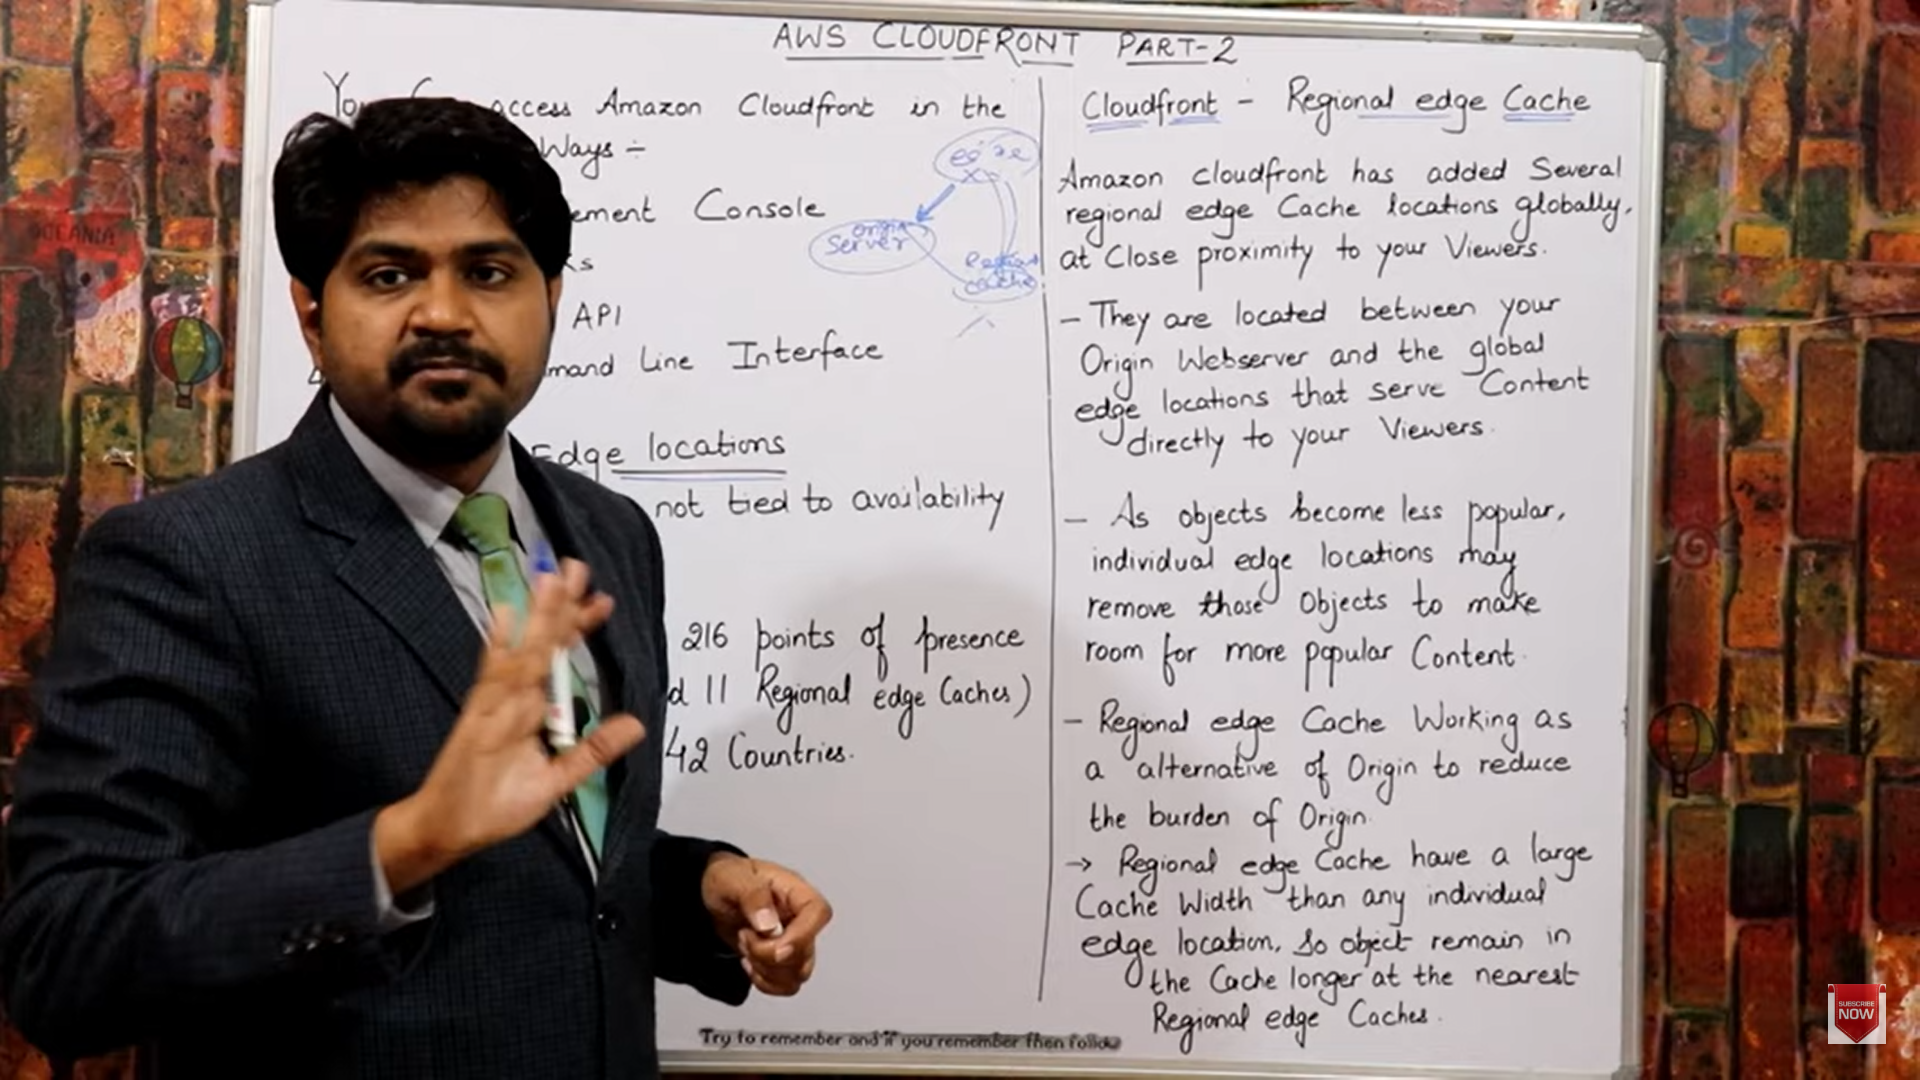 AWS CLOUDFRONT PART-2
You access Amazon Cloudfront in the
Ways :-
ement Console
ks
API
mand Line Interface
Edge locations
not tied to availability
216 points of presence
d 11 Regional edge Caches)
42 Countries.
edge
origin
Server
Cache
Cloudfront - Regional edge Cache
Amazon cloudfront has added Several
regional edge Cache locations globally,
at Close proximity to your Viewers.
- They are located between your
Origin Webserver and the global
edge locations that serve Content
directly to your Viewers.
- As objects become less popular,
individual edge locations may
remove those Objects to make
room for more popular Content.
- Regional edge Cache Working as
a alternative of Origin to reduce
the burden of Origin.
→ Regional edge Cache have a large
Cache Width than any individual
edge location, so object remain in
the Cache longer at the nearest
Regional edge Caches.
Try to remember and if you remember then follow
OCEANIA
SUBSCRIBE
NOW